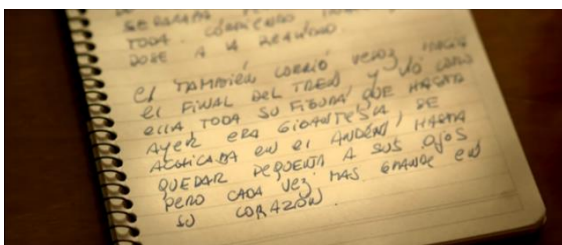 SEPARABA
TODA. CORRIENDO
DOSE A LA REALIDAD.
El TAMBIÉN CORRIÓ VELOZ HACIA
el FINAL DEL TREN y vió COMO
ELLA TODA SU FIGURA QUE HASTA
AYER ERA GIGANTESCA SE
ACHICABA EN el ANDÉN, HASTA
QUEDAR PEQUEÑA A SUS OJOS
PERO CADA VEZ MAS GRANDE EN
SU CORAZÓN.